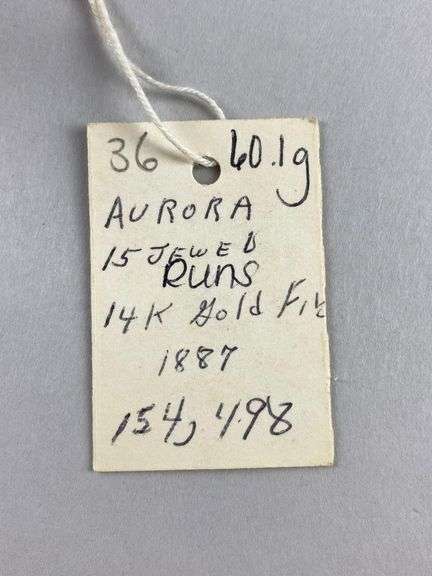 36 60.1g
AURORA
15 JEWEL
Runs
14K Gold Fil
1887
154,498